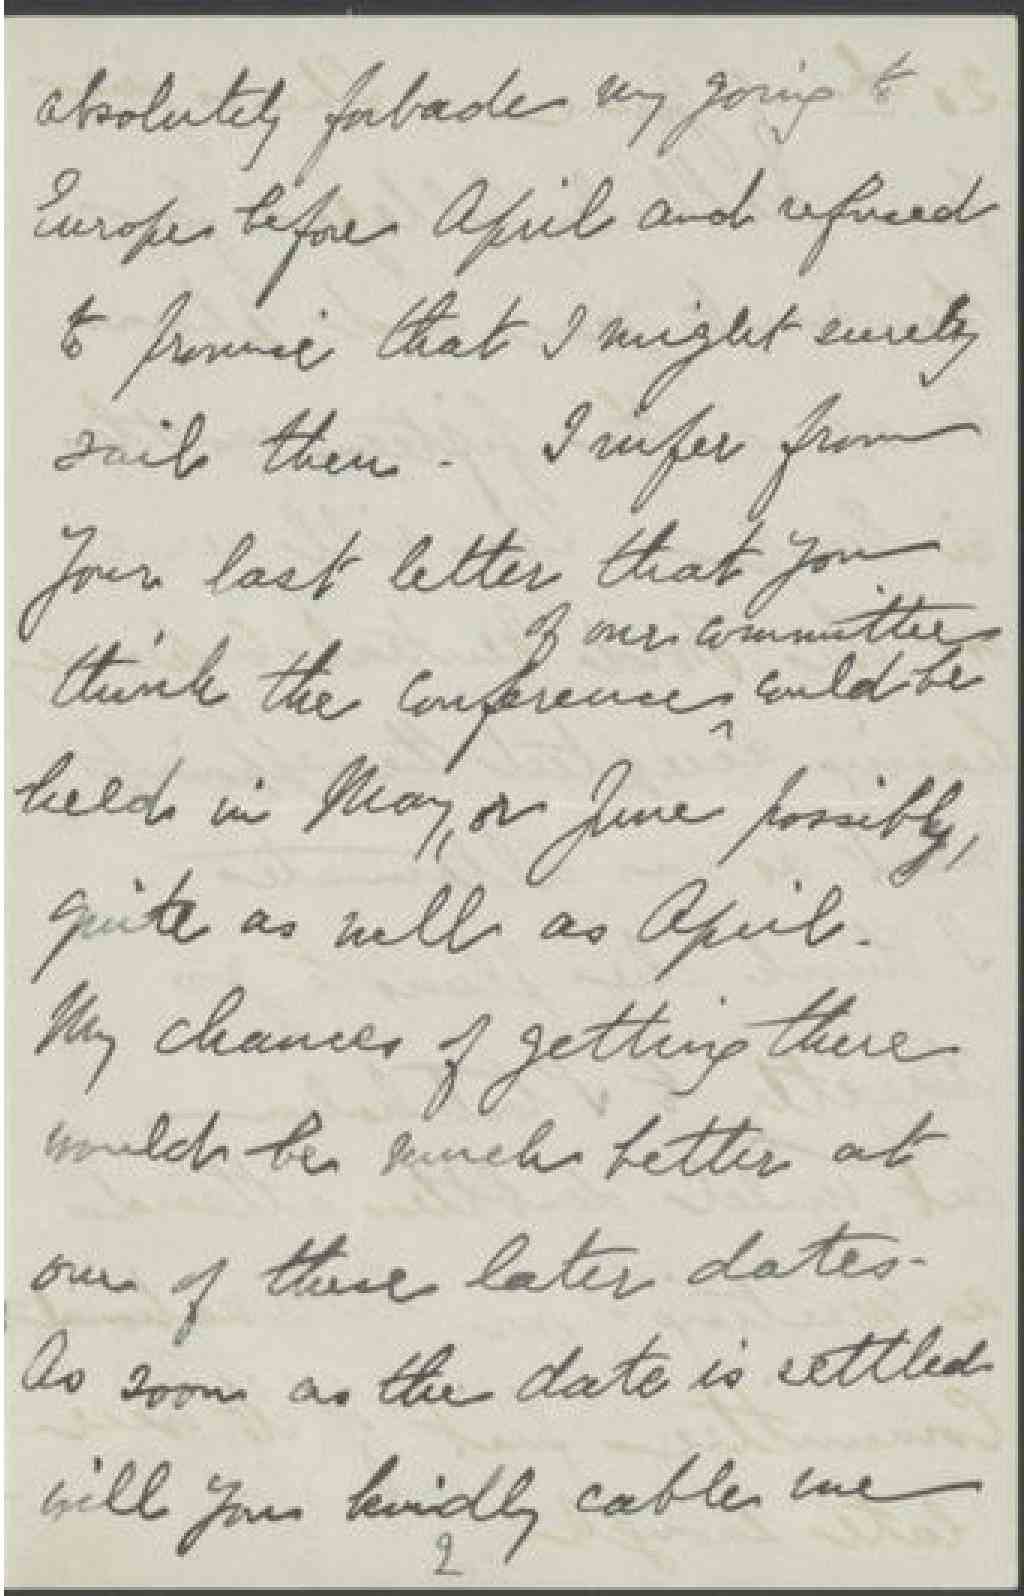 absolutely forbade my going to
Europe before April and refused
to promise that I might surely
sail then. I infer from
your last letter that you
of our committee
think the conference ^ could be
held in May, or June possibly,
quite as well as April.
My chances of getting there
would be much better at
one of these later dates.
As soon as the date is settled
will you kindly cable me
2